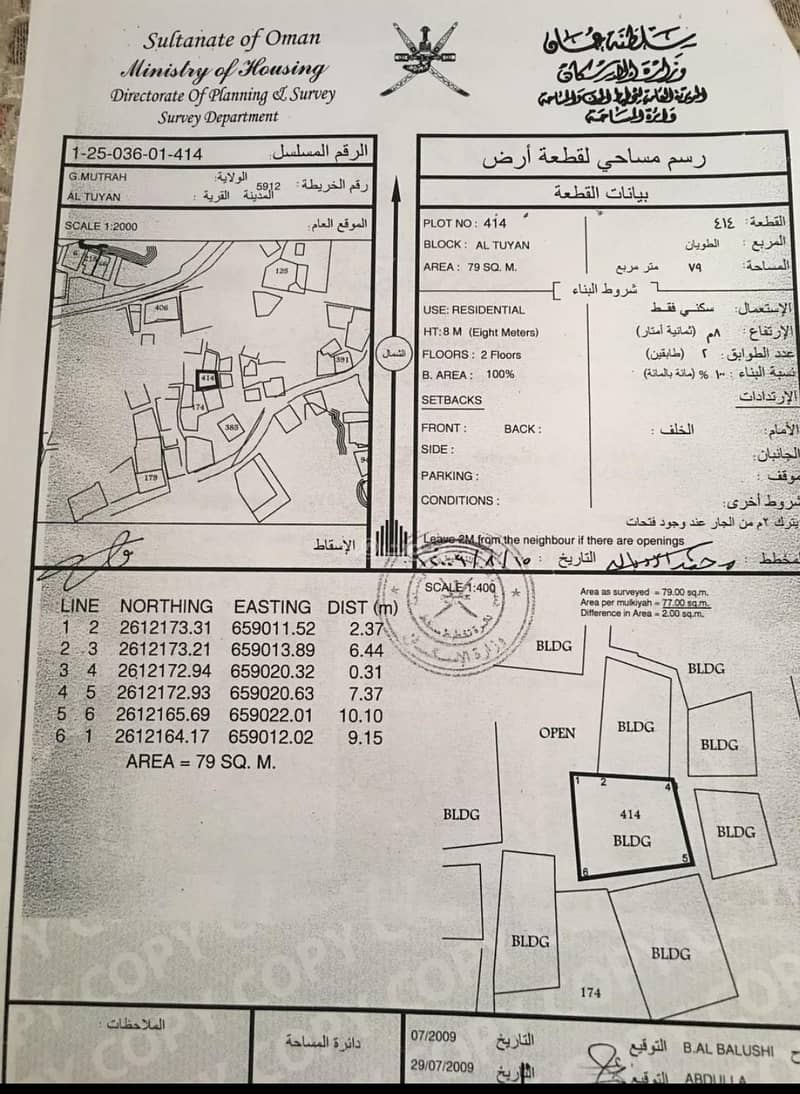 Sultanate of Oman
Ministry of Housing
Directorate Of Planning & Survey
Survey Department
سلطنة عمان
وزارة الإسكان
دائرة المساحة
1-25-036-01-414 الرقم المسلسل:
G.MUTRAH الولاية:
5912 رقم الخريطة:
AL TUYAN المدينة القرية :
SCALE 1:2000 الموقع العام:
125
406
391
414
174
385
179
الإسقاط
الشمال
رسم مساحي لقطعة أرض
بيانات القطعة
PLOT NO : 414 القطعة: ٤١٤
BLOCK : AL TUYAN المربع : الطويان
AREA : 79 SQ. M. المساحة: ٧٩ متر مربع
شروط البناء
USE: RESIDENTIAL الإستعمال: سكني فقط
HT: 8 M (Eight Meters) الإرتفاع: ٨م (ثمانية أمتار)
FLOORS : 2 Floors عدد الطوابق: ٢ (طابقين)
B. AREA : 100% نسبة البناء : ١٠٠ % (مائة بالمائة)
SETBACKS الإرتدادات
FRONT : BACK : الخلف : الأمام:
SIDE : الجانبان:
PARKING : موقف :
CONDITIONS : شروط أخرى:
يترك ٢م من الجار عند وجود فتحات
Leave 2M from the neighbour if there are openings
التاريخ : مخطط :
SCALE 1:400
Area as surveyed = 79.00 sq.m.
Area per mulkiyah = 77.00 sq.m.
Difference in Area = 2.00 sq.m.
LINE NORTHING EASTING DIST (m)
1 2 2612173.31 659011.52 2.37
2 3 2612173.21 659013.89 6.44
3 4 2612172.94 659020.32 0.31
4 5 2612172.93 659020.63 7.37
5 6 2612165.69 659022.01 10.10
6 1 2612164.17 659012.02 9.15
AREA = 79 SQ. M.
BLDG
BLDG
OPEN
BLDG
BLDG
1 2 4
BLDG
414
BLDG
BLDG
5
6
BLDG
BLDG
174
COPY COPY COPY COPY
الملاحظات :
دائرة المساحة
07/2009 التاريخ التوقيع B.AL BALUSHI
29/07/2009 التاريخ التوقيع ABDULLA